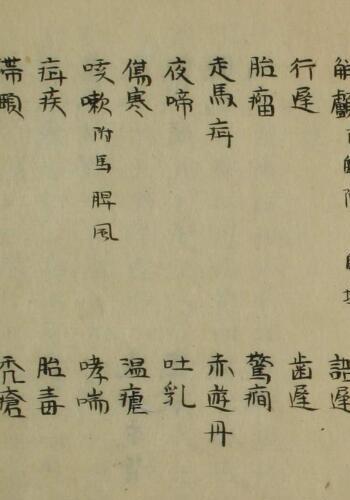 解顱
語遅
行遅
歯遅
胎瘤
驚癇
走馬疳
赤遊丹
夜啼
吐乳
傷寒
温瘧
咳嗽附馬脾風
哮喘
疳疾
胎毒
滞頤
禿瘡